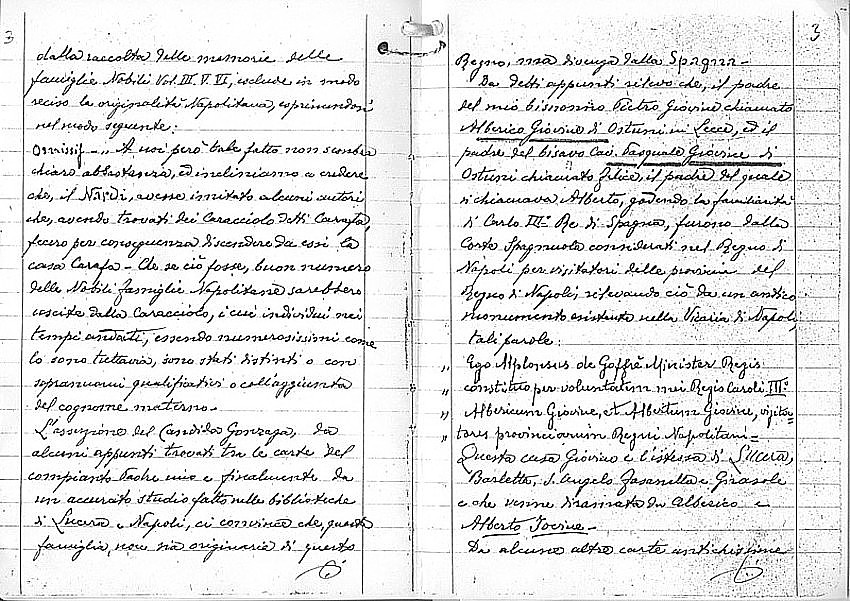 3
dalla raccolta delle memorie delle
famiglie Nobili Vol. III. V. VI, esclude in modo
reciso la originalità Napolitana, esprimendosi
nel modo seguente:
Omissis - „ A noi però tale fatto non sembra
chiaro abbastanza, ed incliniamo a credere
che, il Nardi, avesse imitato alcuni autori
che, avendo trovati dei Caracciolo detti Carafa,
fecero per conseguenza discendere da essi la
casa Carafa - Che se ciò fosse, buon numero
delle Nobili famiglie Napolitane sarebbero
uscite dalla Caracciolo, i cui individui nei
tempi andati, essendo numerosissimi come
lo sono tuttavia, sono stati distinti o con
soprannomi qualificativi o coll'aggiunta
del cognome materno -
L'asserzione del Candida Gonzaga, da
alcuni appunti trovati tra le carte del
compianto Padre mio e finalmente da
un accurato studio fatto nelle biblioteche
di Lucera e Napoli, ci convince che, questa
famiglia, non sia originaria di questo
3
Regno, ma divenga dalla Spagna -
Da detti appunti rilevo che, il padre
del mio bisnonno Pietro Giovine chiamato
Alberico Giovine di Ostuni in Lecce, ed il
padre del bisavo Cav. Pasquale Giovine di
Ostuni chiamato Felice, il padre del quale
si chiamava Alberto, godendo la familiarità
di Carlo III.° Re di Spagna, furono dalla
Corte Spagnuola considerati nel Regno di
Napoli per visitatori delle provincie del
Regno di Napoli, rilevando ciò da un antico
monumento esistente nella Vicaria di Napoli,
tali parole:
„ Ego Alphonsus de Goffrè Minister Regis
„ constituo per voluntatem mei Regis Caroli III.°
„ Albericum Giovine, et Albertum Giovine, visita-
„ tores provinciarum Regni Napolitani =
Questa casa Giovine è l'istessa di Lucera,
Barletta, S. Angelo Fasanella e Girasole
e che venne diramata da Alberico e
Alberto Jovine -
Da alcune altre carte antichissime